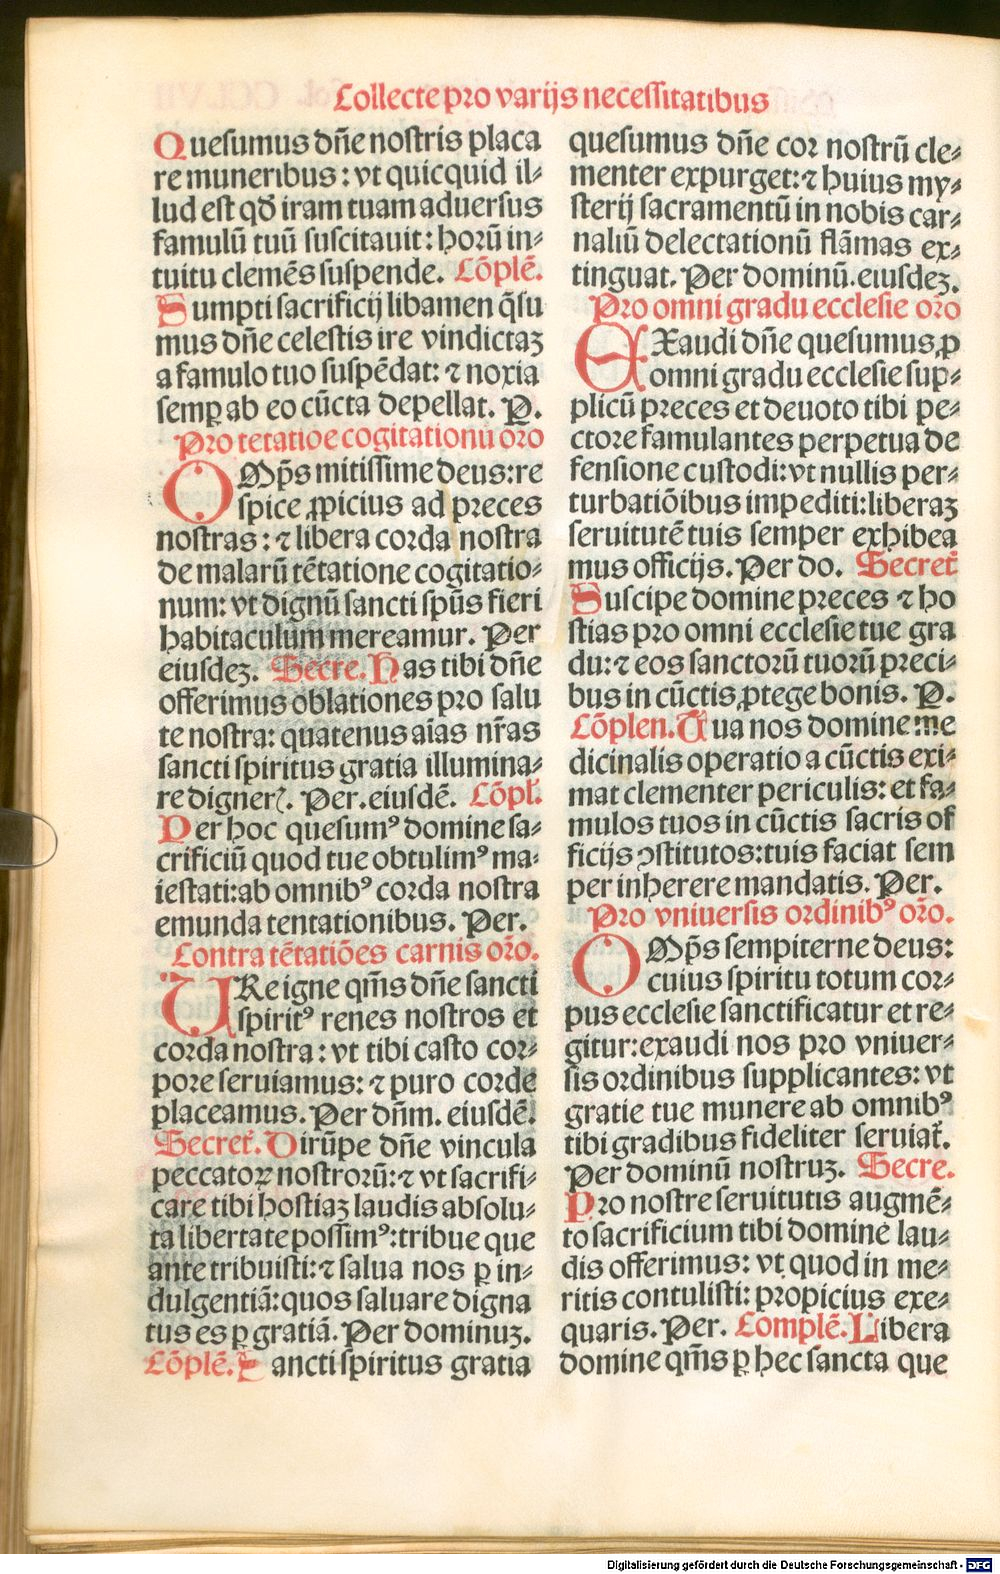 Collecte pro varijs necessitatibus
Quesumus dñe nostris placa
re muneribus: vt quicquid il⸗
lud est qđ iram tuam aduersus
famulū tuū suscitauit: horū in⸗
tuitu clemēs suspende. Cōplē.
Sumpti sacrificij libamen q̄su
mus dñe celestis ire vindictaꝫ
a famulo tuo suspēdat: ⁊ noxia
semꝑ ab eo cūcta depellat. P.
Pro tētatiōe cogitationū oro
OMp̄s mitissime deus: re
spice ꝓpicius ad preces
nostras: ⁊ libera corda nostra
de malarū tētatione cogitatio⸗
num: vt dignū sancti spūs fieri
habitaculum mereamur. Per
eiusdeꝫ. Secre. Has tibi dñe
offerimus oblationes pro salu
te nostra: quatenus aīas nr̄as
sancti spiritus gratia illumina⸗
re digneꝛ̄. Per. eiusdē. Cōpl̄.
Per hoc quesumꝰ domine sa⸗
crificiū quod tue obtulimꝰ ma⸗
iestati: ab omnibꝰ corda nostra
emunda tentationibus. Per.
Contra tētatiōes carnis oro.
URe igne qm̄s dñe sancti
spiritꝰ renes nostros et
corda nostra: vt tibi casto cor⸗
pore seruiamus: ⁊ puro corde
placeamus. Per dñm. eiusdē.
Secret̄. Dirūpe dñe vincula
peccatoꝝ nostrorū: ⁊ vt sacrifi⸗
care tibi hostiaꝫ laudis absolu⸗
ta libertate possimꝰ: tribue que
ante tribuisti: ⁊ salua nos ꝑ in⸗
dulgentiā: quos saluare digna
tus es ꝑ gratiā. Per dominuꝫ.
Cōplē. Sancti spiritus gratia
quesumus dñe cor nostrū cle⸗
menter expurget: ⁊ huius my⸗
sterij sacramentū in nobis car⸗
naliū delectationū flāmas ex⸗
tinguat. Per dominū. eiusdeꝫ.
Pro omni gradu ecclesie oro
EXaudi dñe quesumus ꝓ
omni gradu ecclesie sup⸗
plicū preces et deuoto tibi pe⸗
ctore famulantes perpetua de
fensione custodi: vt nullis per⸗
turbatiōibus impediti: liberaꝫ
seruitutē tuis semper exhibea
mus officijs. Per do. Secret̄
Suscipe domine preces ⁊ ho
stias pro omni ecclesie tue gra
du: ⁊ eos sanctorū tuorū preci⸗
bus in cūctis ꝓtege bonis. P.
Cōplen. Tua nos domine me
dicinalis operatio a cūctis exi⸗
mat clementer periculis: et fa⸗
mulos tuos in cūctis sacris of
ficijs ꝯstitutos: tuis faciat sem
per inherere mandatis. Per.
Pro vniuersis ordinibꝰ oro.
OMp̄s sempiterne deus:
cuius spiritu totum cor⸗
pus ecclesie sanctificatur et re⸗
gitur: exaudi nos pro vniuer⸗
sis ordinibus supplicantes: vt
gratie tue munere ab omnibꝰ
tibi gradibus fideliter seruiat̄.
Per dominū nostruꝫ. Secre.
Pro nostre seruitutis augmē⸗
to sacrificium tibi domine lau⸗
dis offerimus: vt quod in me⸗
ritis contulisti: propicius exe⸗
quaris. Per. Complē. Libera
domine qm̄s ꝑ hec sancta que
Digitalisierung gefördert durch die Deutsche Forschungsgemeinschaft - DFG